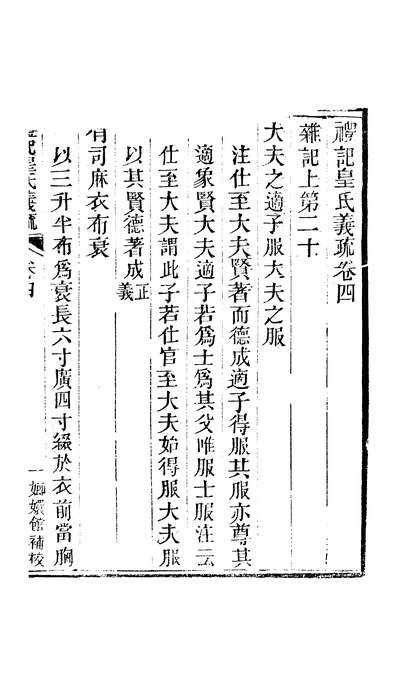 禮記皇氏義疏卷四
雜記上第二十
大夫之適子服大夫之服
注仕至大夫賢著而德成適子得服其服亦尊其
適象賢大夫適子若爲士爲其父唯服士服注云
仕至大夫謂此子若仕官至大夫始得服大夫服
以其賢德著成正義
有司麻衣布衰
以三升半布爲衰長六寸廣四寸綴於衣前當胸
記皇氏義疏 卷四 一 嫏嬛館補校